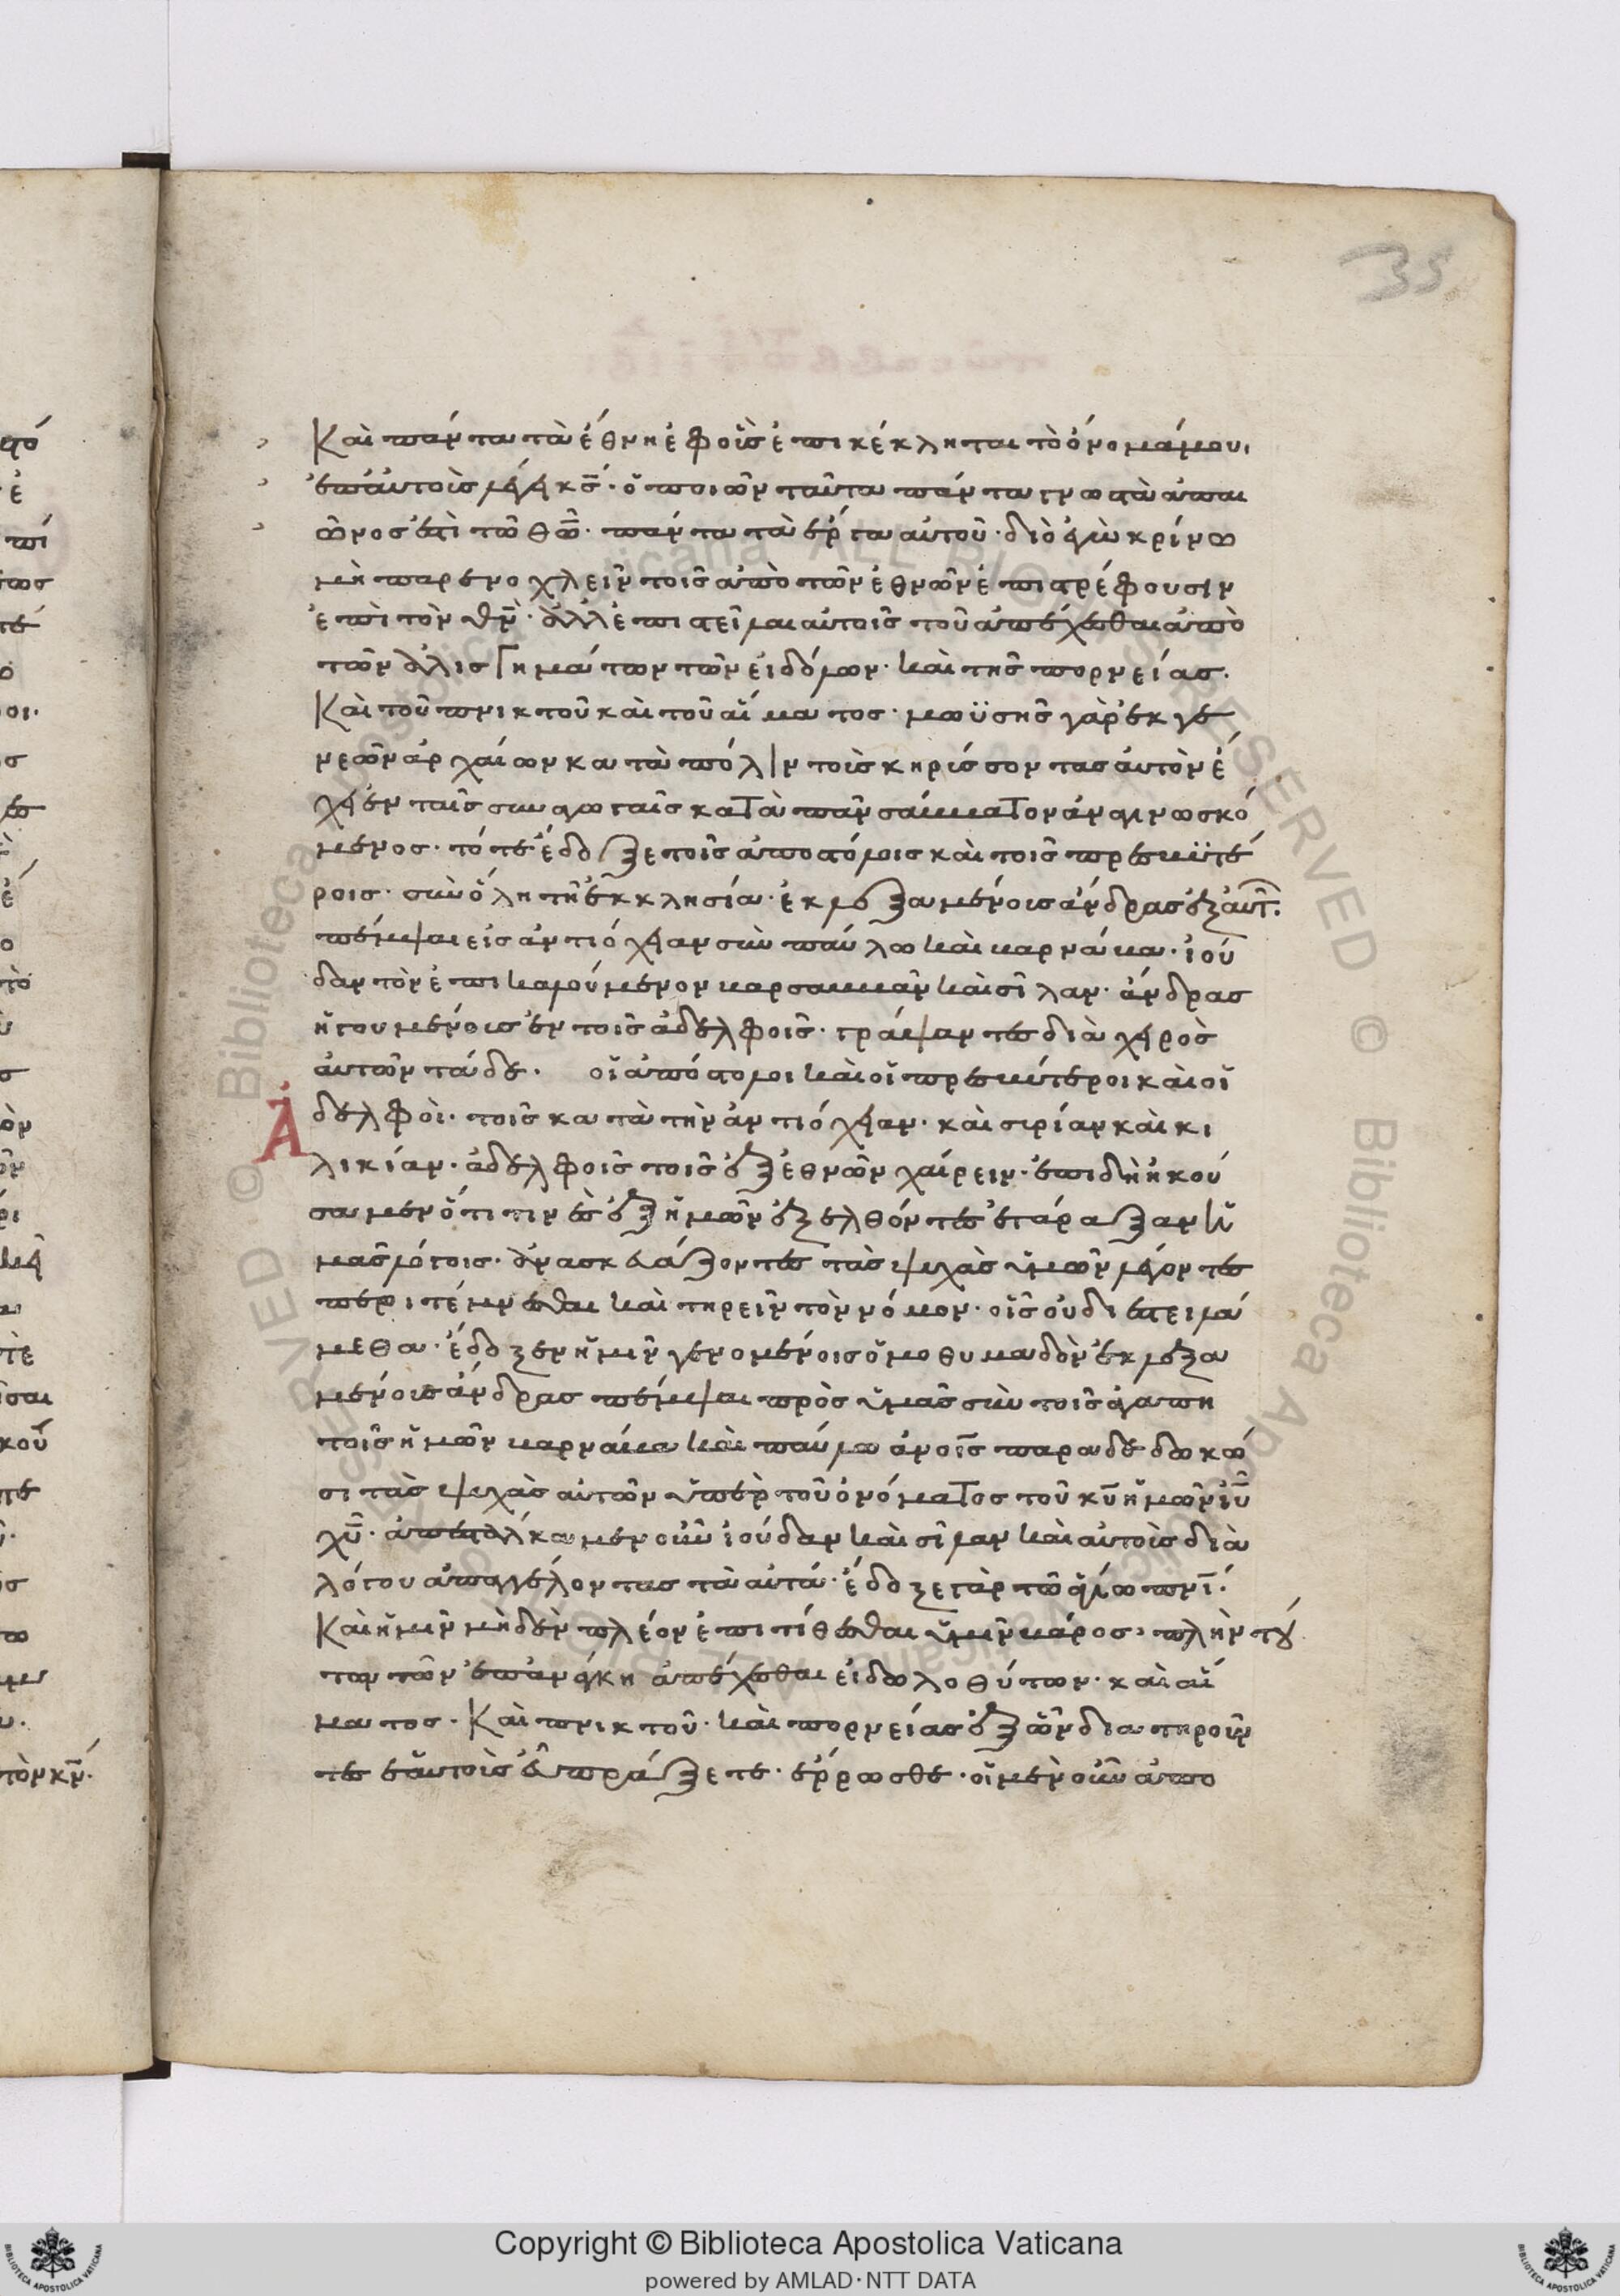 35
Καὶ πάντα τὰ ἔθνη ἐφ οἷς ἐπικέκληται τὸ ὄνομά μου,
ἐπ αυτοὺς λέγει κς. ὁ ποιῶν ταῦτα πάντα γνωστὰ ἀπ αι
ῶνος ἐστὶ τῶ θῶ. πάντα τὰ ἔργα αὐτοῦ. διὸ ἐγὼ κρίνω
μὴ παρενοχλεῖν τοῖς ἀπὸ τῶν ἐθνῶν ἐπιστρέφουσιν
ἐπὶ τὸν θν. ἀλλ ἐπιστεῖλαι αὐτοῖς τοῦ ἀπέχεσθαι ἀπὸ
τῶν ἀλισγημάτων τῶν εἰδόλων. καὶ τῆς πορνείας.
Καὶ τοῦ πνικτοῦ καὶ τοῦ αἵματος. μωϋσῆς γὰρ ἐκ γε
νεῶν ἀρχαίων κατὰ πόλιν τοὺς κηρίσσοντας αὐτὸν ἔ
χει ἐν ταῖς συναγωγαῖς κατὰ πᾶν σάββατον ἀναγινωσκό
μενος. τότε ἔδοξε τοῖς ἀποστόλοις καὶ τοῖς πρεσβϋτέ
ροις. σὺν ὅλη τῇ ἐκκλησία. ἐκλεξαμένους ἄνδρας ἐξ αὐτ.
πέμψαι εἰς ἀντιόχειαν σὺν παύλω καὶ βαρνάβα. ἰού
δαν τὸν ἐπικαλούμενον βαρσαββᾶν καὶ σῖλαν. ἄνδρας
ἡγουμένους ἐν τοῖς ἀδελφοῖς. γράψαντες διὰ χειρὸς
αὐτῶν τάδε. οἱ ἀπόστολοι καὶ οἱ πρεσβύτεροι καὶ οἱ
Ἀδελφοὶ. τοῖς κατὰ τὴν ἀντιόχειαν. καὶ σιρίαν καὶ κι
λικίαν. ἀδελφοῖς τοῖς ἐξ ἐθνῶν χαίρειν. ἐπιδὴ ἠκού
σαμεν ὅτι τινὲς ἐξ ἡμῶν ἐξελθόντες ἐτάραξαν ὑ
μᾶς λόγοις. ἀνασκευάζοντες τὰς ψυχὰς ὑμῶν λέγοντες
περιτέμνεσθαι καὶ τηρεῖν τὸν νόμον. οἷς οὐ διεστειλά
μεθα. ἔδοξεν ἡμῖν γενομένοις ὁμοθυμαδὸν ἐκλεξα
μένους ἄνδρας πέμψαι πρὸς ὑμᾶς σὺν τοῖς ἀγαπη
τοῖς ἡμῶν βαρνάβα καὶ παύλω ἀνοις παραδεδωκώ
σι τὰς ψυχὰς αὐτῶν ὑπὲρ τοῦ ὀνόματος τοῦ κυ ἡμῶν ἰυ
χυ. ἀπεστάλκαμεν οὖν ἰούδαν καὶ σῖλαν καὶ αὐτοὺς διὰ
λόγου ἀπαγγέλοντας τὰ αὐτά. ἔδοξε γὰρ τῶ ἁγίω πνι.
Καὶ ἡμῖν μηδὲν πλέον ἐπιτίθεσθαι ὑμῖν βάρος, πλὴν τού
των τῶν ἐπάναγκη ἀπέχεσθαι εἰδωλοθύτων. καὶ αἵ
ματος. Καὶ πνικτοῦ. καὶ πορνείας ἐξ ὧν διατηροῦν
τες ἑαυτοὺς εὖ πράξετε. ἔρρωσθε. οἱ μὲν οὖν ἀπο
Copyright © Biblioteca Apostolica Vaticana
powered by AMLAD·NTT DATA